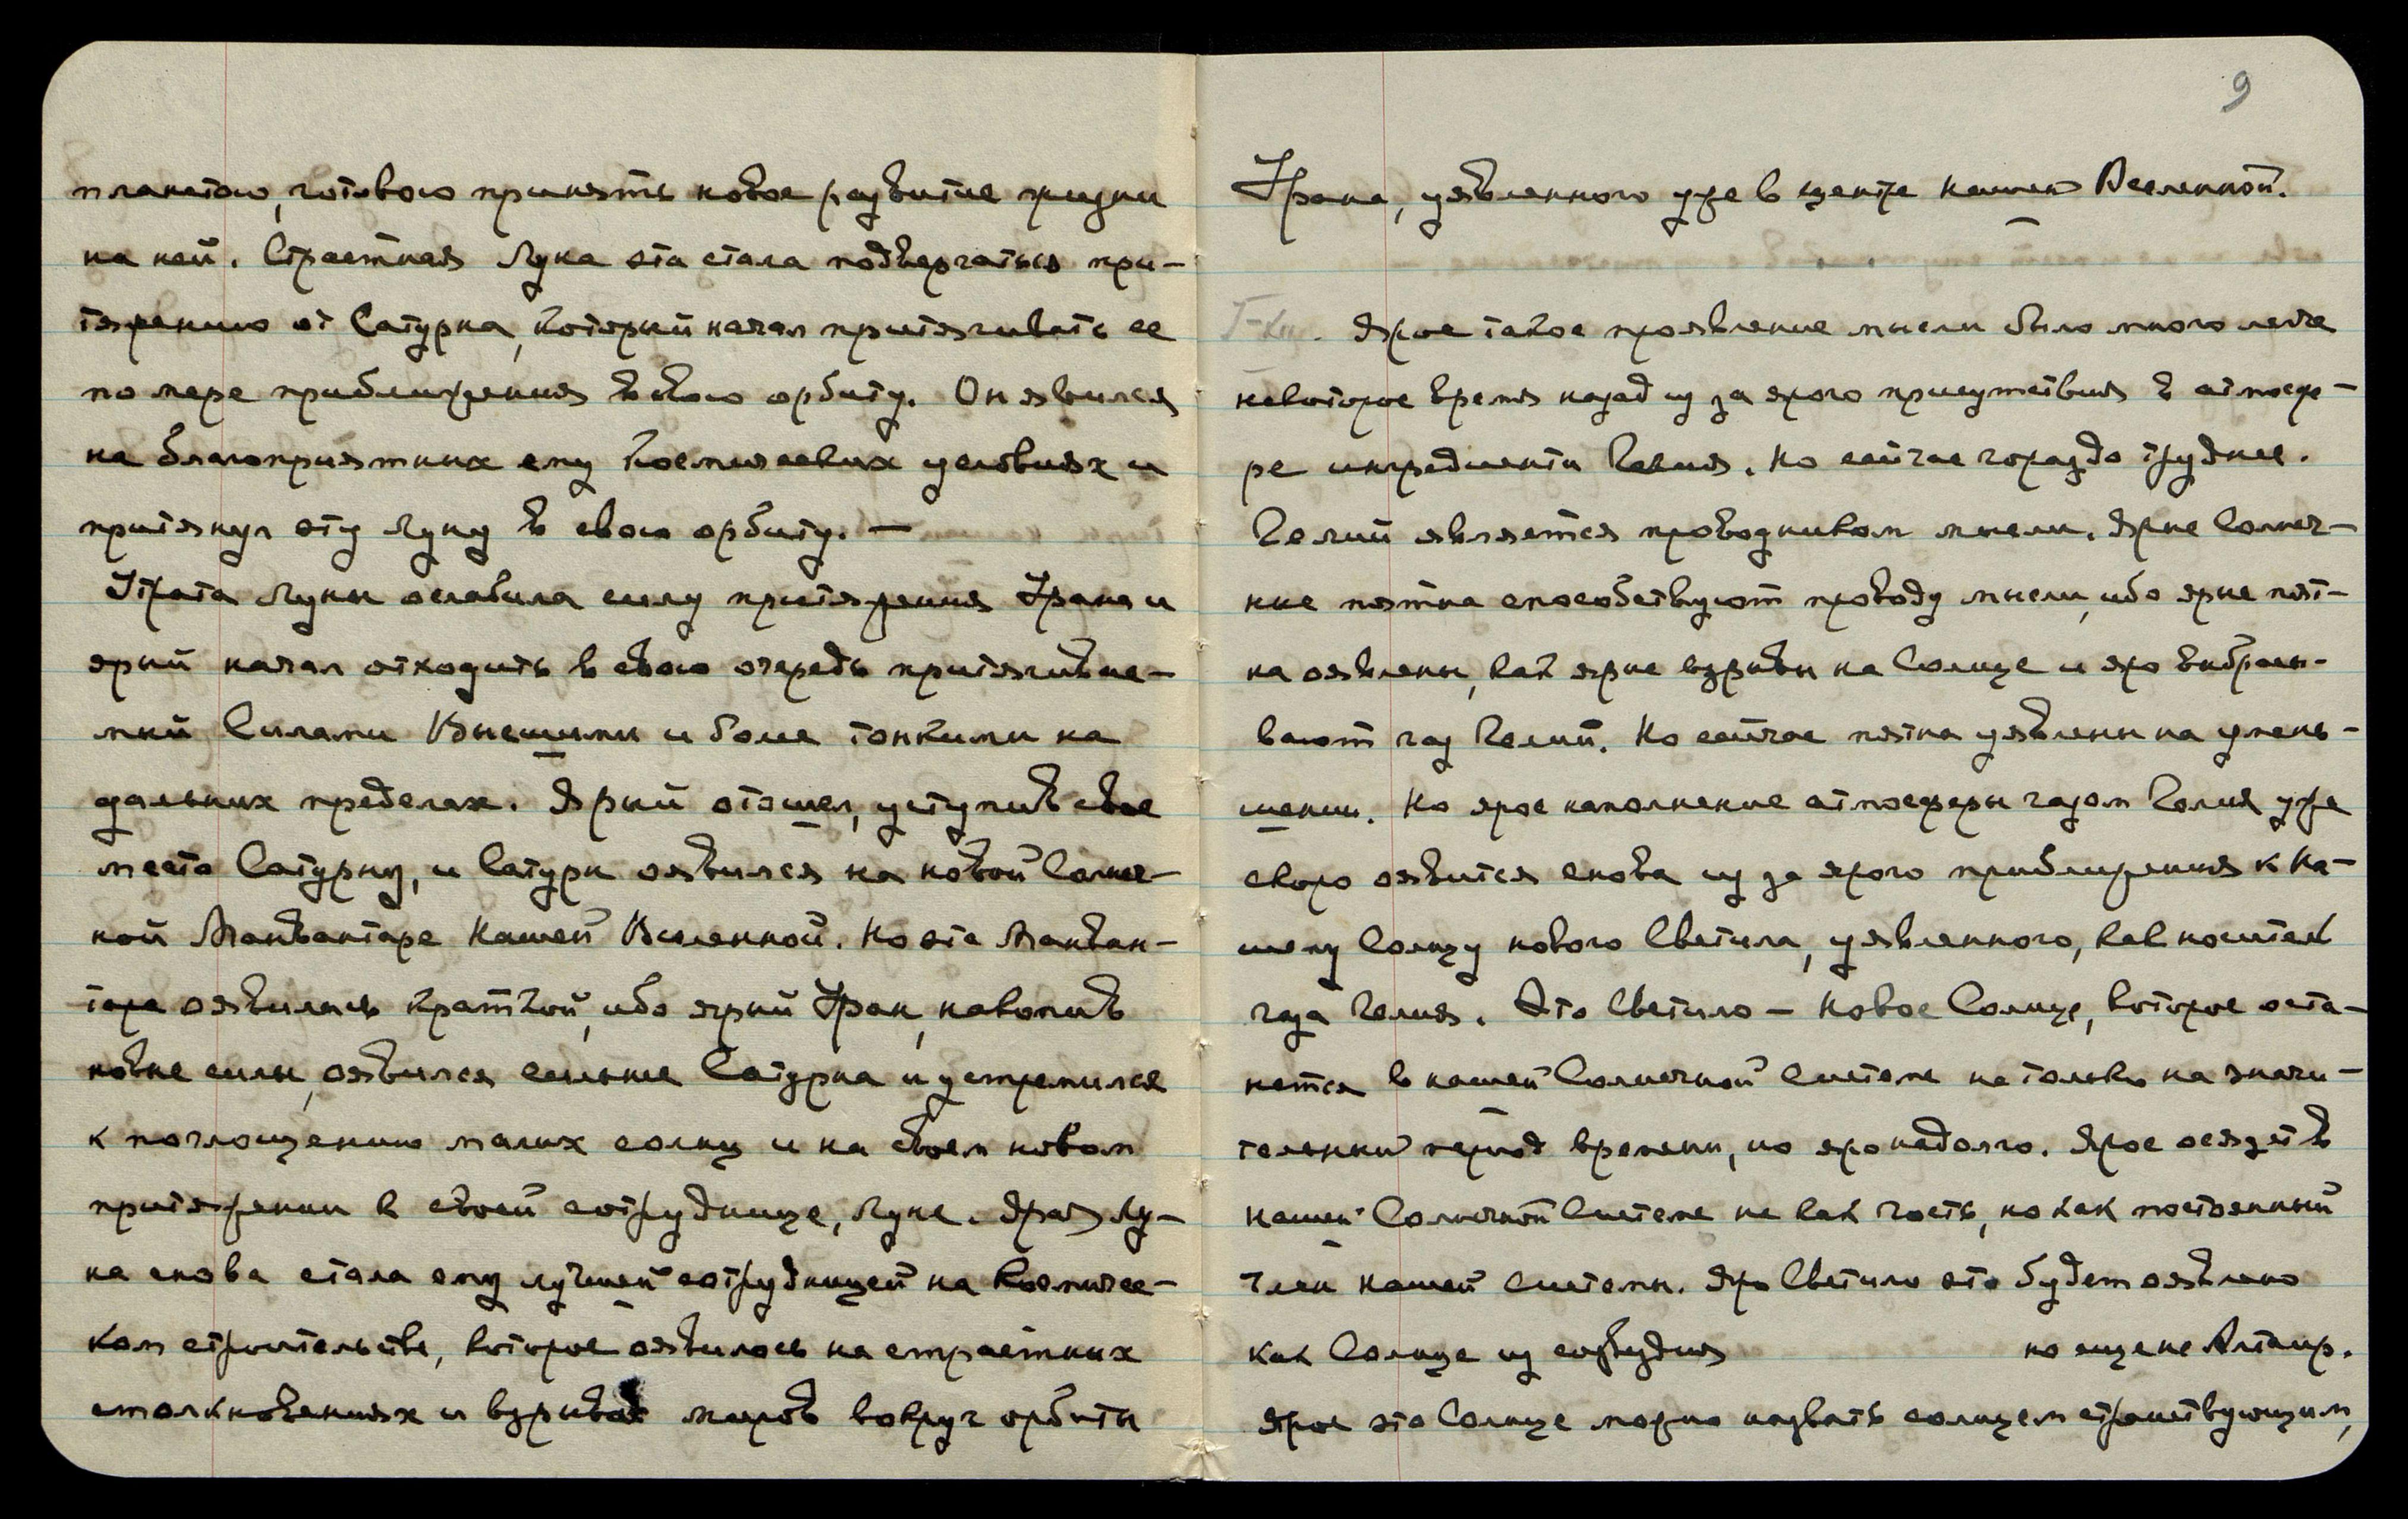 планетою, готовою принять новое развитие жизни
на ней. Страстная Луна эта стала подвергаться при-
тяжению от Сатурна, который начал притягивать ее
по мере приближения в свою орбиту. Он явился
на благоприятных ему космических условиях и
притянул эту Луну в свою орбиту. —
Утрата Луны ослабила силу притяжения Урана и
ярый начал отходить в свою очередь притягивае-
мый Силами Высшими и более тонкими на
дальних пределах. Ярый отошел, уступив свое
место Сатурну, и Сатурн оявился на новой Солнеч-
ной Манвантаре Нашей Вселенной. Но эта Манван-
тара оявилась краткой, ибо ярый Уран, накопив
новые силы, оявился сильнее Сатурна и устремился
к поглощению малых солнц и на своем новом
притяжении к своей сотруднице, Луне. Ярая Лу-
на снова стала ему лучшей сотрудницей на Космичес-
ком строительстве, которое оявилось на страстных
столкновениях и взрывах миров вокруг орбиты
9
Урана, уявленного уже в центре нашей Вселенной.
Ярое такое проявление мысли было много легче
некоторое время назад из за ярого присутствия в атмосфе-
ре ингредиента Гелия. Но сейчас гораздо труднее.
Гелий является проводником мысли. Ярые Солнеч-
ные пятна способствуют проводу мысли, ибо ярые пят-
на оявлены, как ярые взрывы на Солнце и яро выбрасы-
вают газ Гелий. Но сейчас пятна уявлены на умень-
шении. Но ярое наполнение атмосферы газом Гелия уже
скоро оявится снова из за ярого приближения к На-
шему Солнцу нового Светила, уявленного, как носитель
газа Гелия. Это Светило — Новое Солнце, которое оста-
нется в нашей Солнечной Системе не только на значи-
тельный период времени, но яро надолго. Ярое осядет в
нашей Солнечной Системе не как гость, но как постоянный
Член нашей системы. Яро Светило это будет оявлено
как Солнце из созвездия но еще не Альтаир.
Ярое это Солнце можно назвать солнцем странствующим,